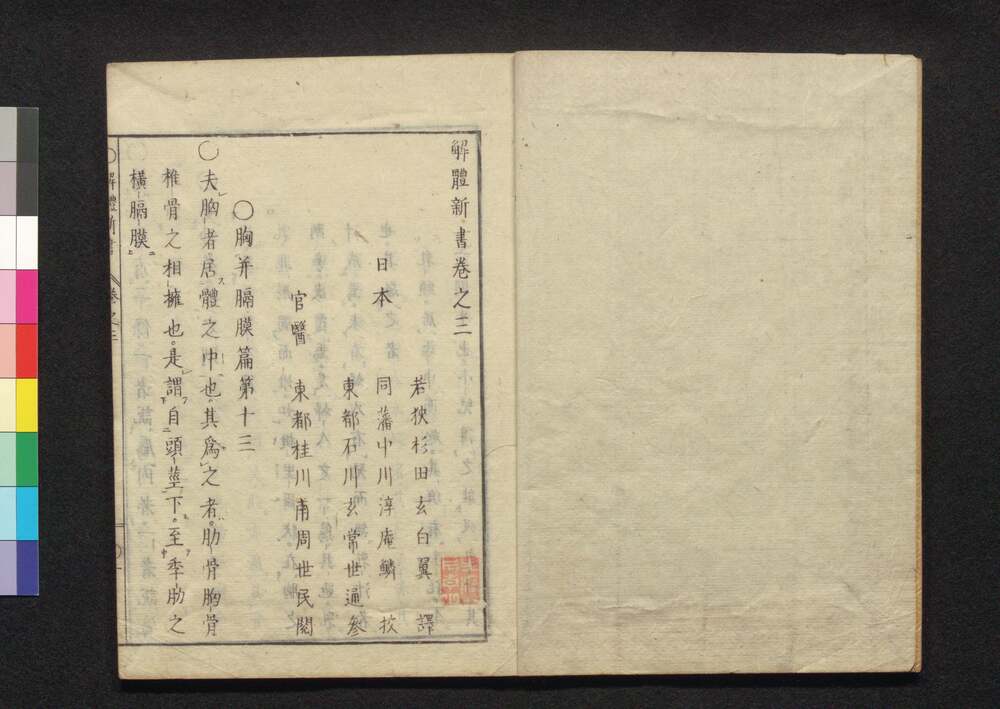 解體新書卷之三
若狹杉田玄白翼 譯
日本 同藩中川淳庵鱗 挍
東都石川玄常世通 參
官醫 東都桂川甫周世民 閱
〇胸并膈膜篇第十三
〇夫胸者居體之中也。其爲之者。肋骨胸骨
椎骨之相擁也。是謂自頭莖下。至季肋之
橫膈膜
〇解體新書 卷之三